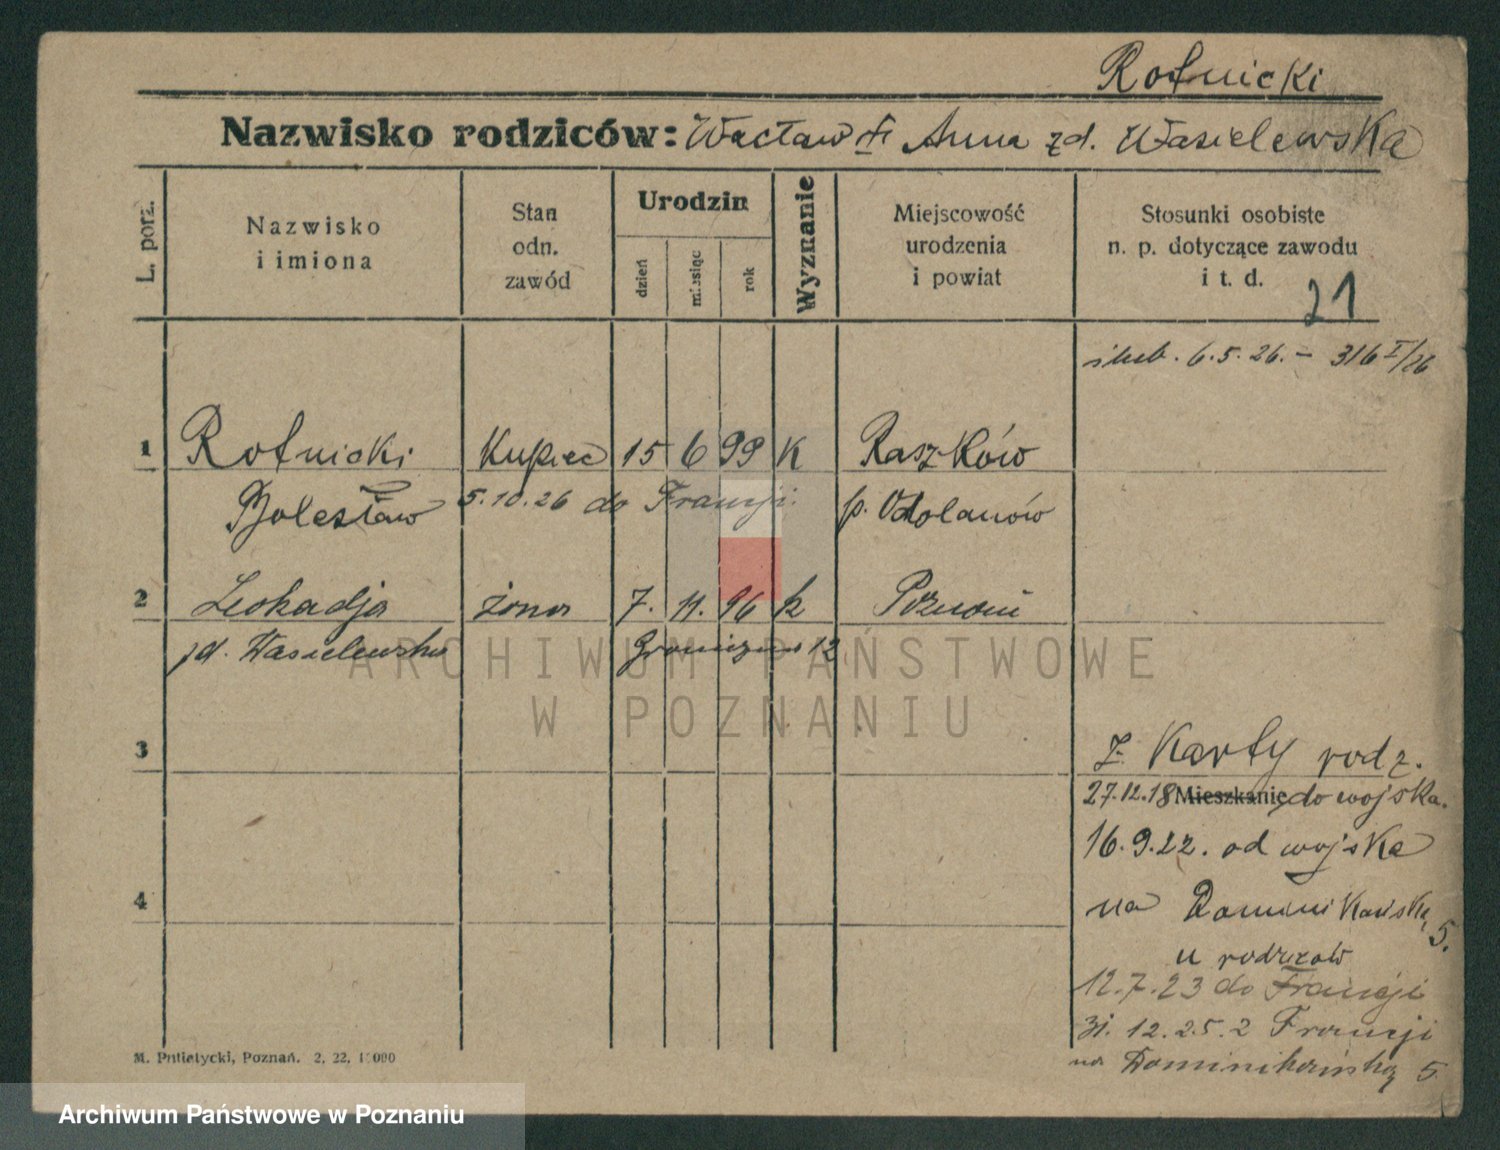 Rotnicki
Nazwisko rodziców: Wacław i Anna zd. Wasielewska
L. porz.
Nazwisko i imiona
Stan odn. zawód
Urodzin
dzień
miesiąc
rok
Wyznanie
Miejscowość urodzenia i powiat
Stosunki osobiste n. p. dotyczące zawodu i t. d.
21
ślub. 6.5.26. – 316 I/26
1 Rotnicki Kupiec 15 6 99 K Raszków
Bolesław 5.10.26 do Francji p. Odolanów
2 Leokadja żona 7. 11. 96 k Poznań
zd. Wasielewska Graniczna 12
3
z Karty rodz.
27.12.18 Mieszkanie do wojska.
16.9.22. od wojska
4
na Dominikańską 5.
u rodziców
12.7.23 do Francji
31.12.25. z Francji
na Dominikańską 5
M. Putiatycki, Poznań. 2, 22,
ARCHIWUM PAŃSTWOWE
W POZNANIU
Archiwum Państwowe w Poznaniu